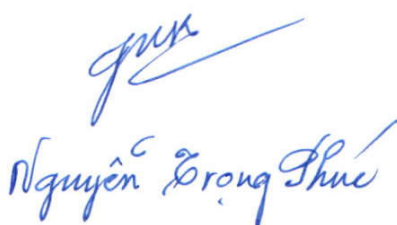 Nguyễn Trọng Phúc